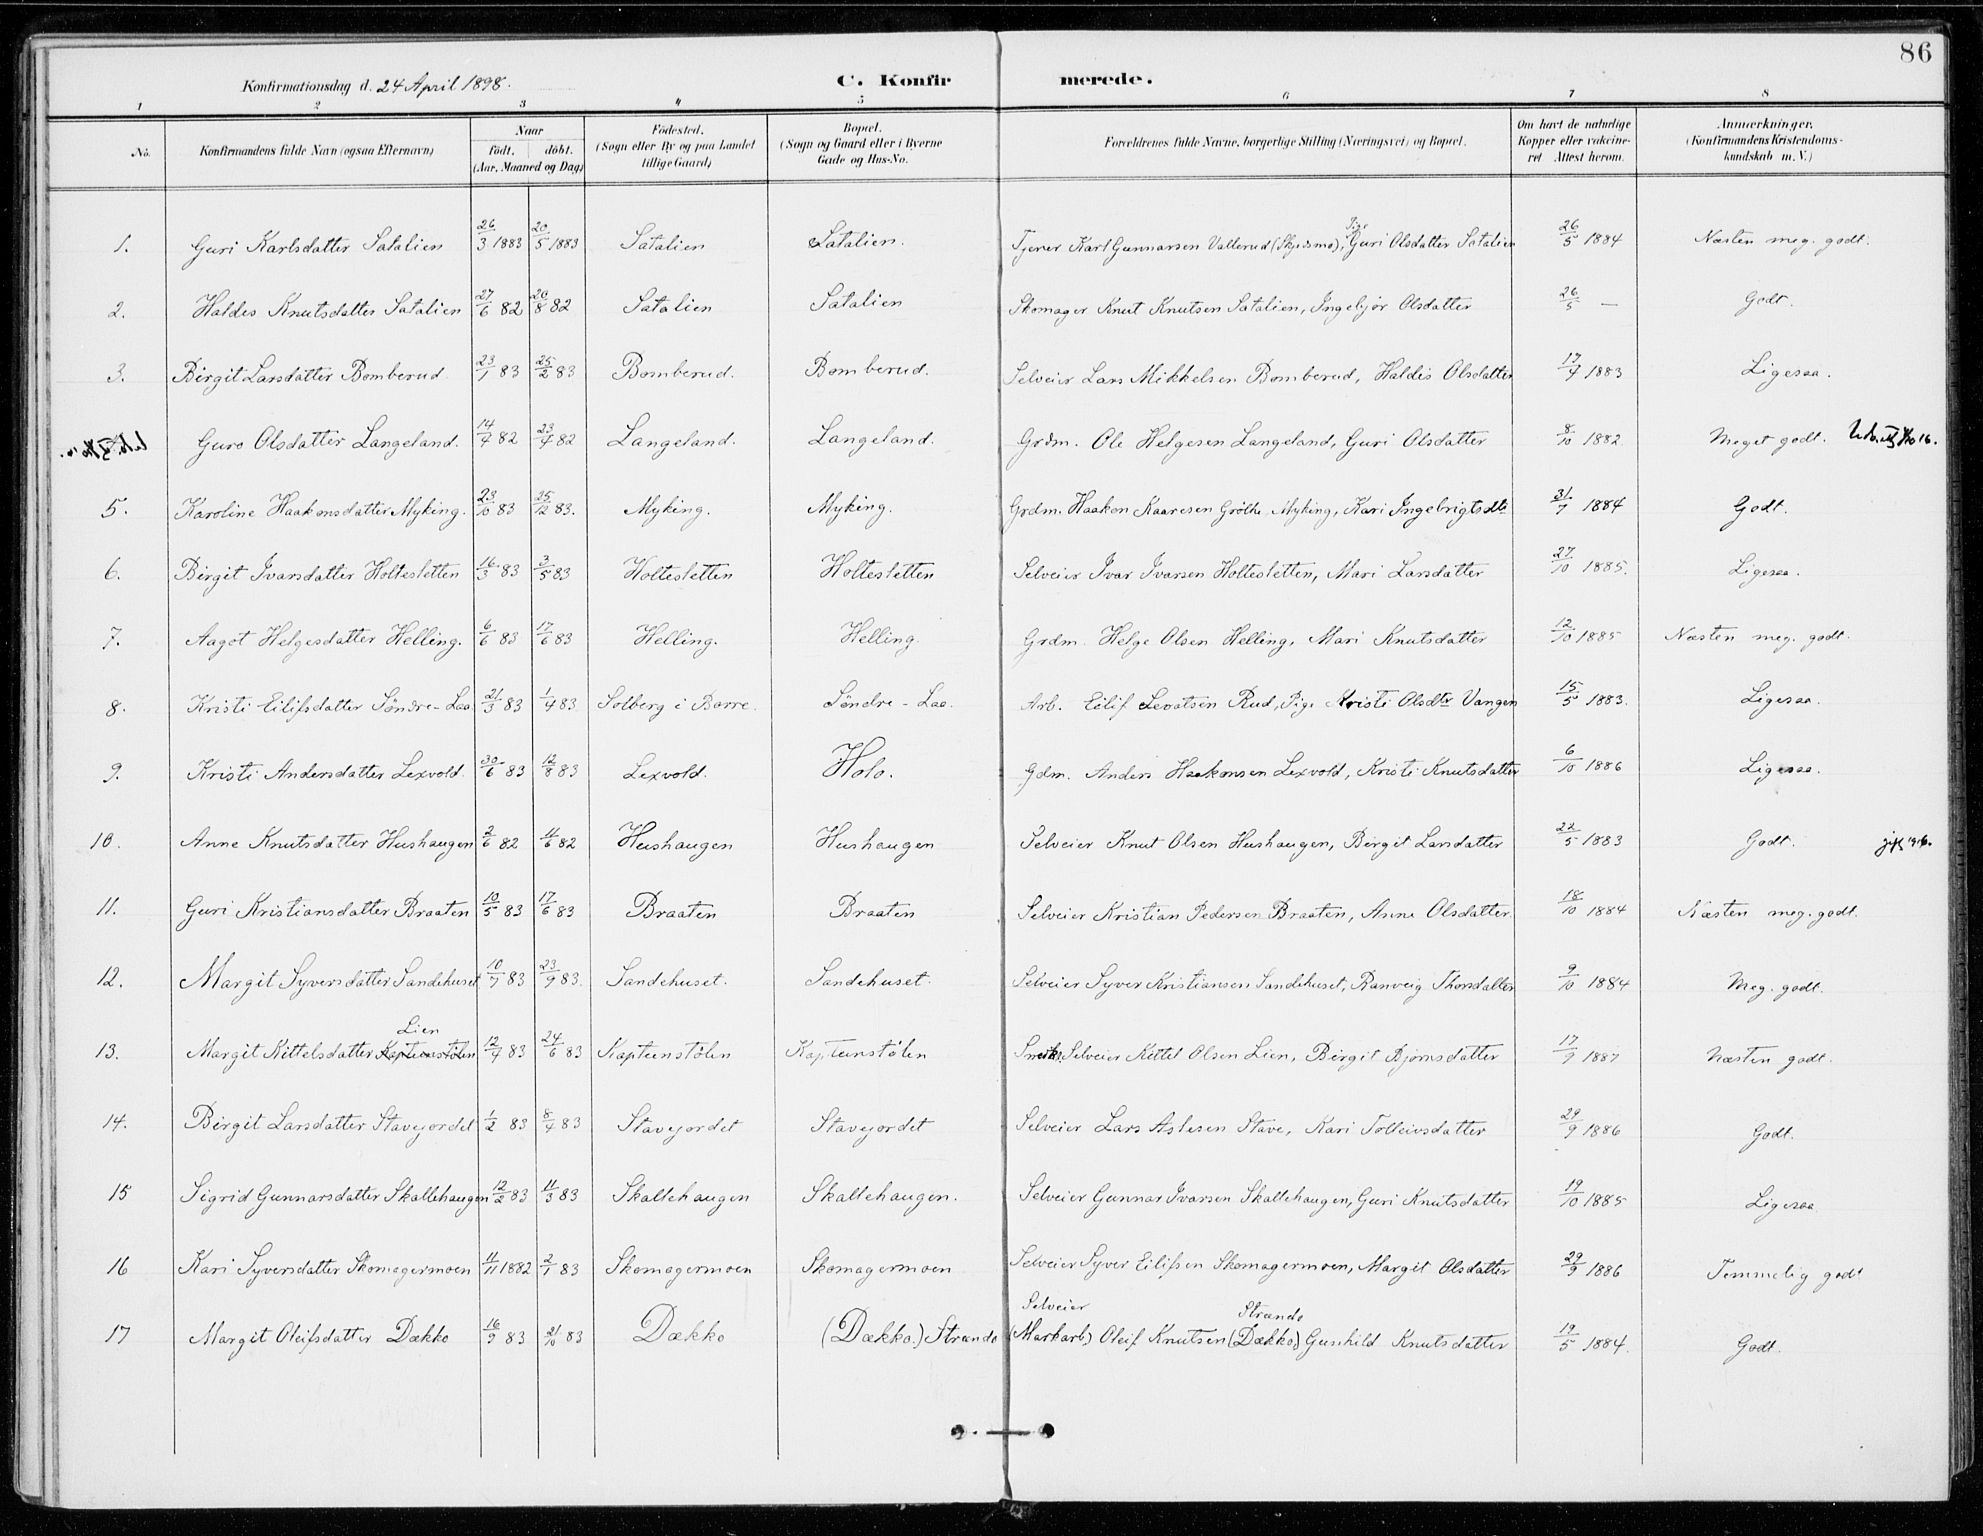 86
Konfirmationsdag d. 24 April 1898. C. Konfirmerede.
1 2 3 4 5 6 7 8
No. Konfirmandens fulde Navn (ogsaa Efternavn) Naar födt. döbt. (Aar, Maaned og Dag) Födested. (Sogn eller By og paa Landet tillige Gaard) Bopæl. (Sogn og Gaard eller i Byerne Gade og Hus-No. Forældrenes fulde Navne, borgerlige Stilling (Næringsvei) og Bopæl. Om havt de naturlige Kopper eller vakcineret Attest herom. Anmærkninger. (Konfirmandens Kristendomskundskab m. V.)
1. Guri Karlsdatter Satalien 26/3 1883 20/5 1883 Satalien Satalien. Tjener Karl Gunnarsen Vallerud (Skjedsmo), Pige Guri Olsdatter Satalien 26/5 1884 Næsten meg. godt.
2. Haldis Knutsdatter Satalien 27/6 82 20/8 82 Satalien Satalien Skomager Knut Knutsen Satalien, Ingebjør Olsdatter 26/5 — Godt.
3. Birgit Larsdatter Bomberud 23/1 83 25/2 83 Bomberud. Bomberud. Selveier Lars Mikkelsen Bomberud, Haldis Olsdatter 17/4 1883 Ligesaa.
Guro Olsdatter Langeland. 14/4 82 23/4 82 Langeland. Langeland. Grdm. Ole Helgesen Langeland, Guri Olsdatter 8/10 1882 Meget godt.
5. Karoline Haakonsdatter Myking. 23/10 83 25/12 83. Myking. Myking. Grdm. Haakon Kaaresen Grøthe Myking, Kari Ingebrigtsdtr 31/7 1884 Godt.
6. Birgit Ivarsdatter Holtesletten 16/3 83 3/5 83 Holtesletten Holtesletten Selveier Ivar Ivarsen Holtesletten, Mari Larsdatter 27/10 1885. Ligesaa.
7. Aagot Helgesdatter Helling. 6/6 83 17/6 83 Helling. Helling. Grdm. Helge Olsen Helling, Mari Knutsdatter 12/10 1885 Næsten meg. godt.
8. Kristi Eilifsdatter Søndre-Laa 21/3 83 1/4 83 Solberg i Borre. Søndre-Laa. Arb. Eilif Levatsen Rud, Pige Kristi Olsdtr Vangen 15/5 1883. Ligesaa.
9. Kristi Andersdatter Lexvold. 30/6 83 12/8 83 Lexvold. Holo. Gdm. Anders Haakonsen Lexvold, Kristi Knutsdatter 6/10 1886 Ligesaa.
10. Anne Knutsdatter Hushaugen 2/6 82 11/6 82 Hushaugen Hushaugen Selveier Knut Olsen Hushaugen, Birgit Larsdatter 22/5 1883 Godt. gift 1916.
11. Guri Kristiansdatter Braaten 10/5 83 17/6 83 Braaten Braaten Selveier Kristian Pedersen Braaten, Anne Olsdatter. 18/10 1884 Næsten meg. godt.
12. Margit Syversdatter Sandehuset 10/7 83 23/9 83. Sandehuset. Sandehuset. Selveier Syver Kristiansen Sandehuset, Ranveig Thorsdatter 9/10 1884 Meg. godt.
Lien
13. Margit Kittelsdatter Kapteinstølen 12/4 83 24/6 83 Kapteinstølen Kapteinstølen Snedk. Selveier Kittel Olsen Lien, Birgit Bjørnsdatter 17/9 1887 Næsten godt.
14. Birgit Larsdatter Stavejordet 1/2 83 8/4 83 Stavejordet Stavejordet Selveier Lars Aslesen Stave, Kari Tolleivsdatter 29/9 1886 Godt.
15 Sigrid Gunnarsdatter Skallehaugen 12/2 83 11/3 83 Skallehaugen Skallehaugen. Selveier Gunnar Ivarsen Skallehaugen, Guri Knutsdatter 19/10 1885 Ligesaa
16 Kari Syversdatter Skomagermoen 11/11 1882 2/1 83 Skomagermoen Skomagermoen Selveier Syver Eilifsen Skomagermoen, Margit Olsdatter 29/9 1886 Temmelig godt
Selveier Strande
17 Margit Oleifsdatter Dækko 16/9 83 21/10 83 Dækko (Dækko.) Strande (Markarb) Oleif Knutsen (Dækko) Gunhild Knutsdatter 19/5 1884. Godt.